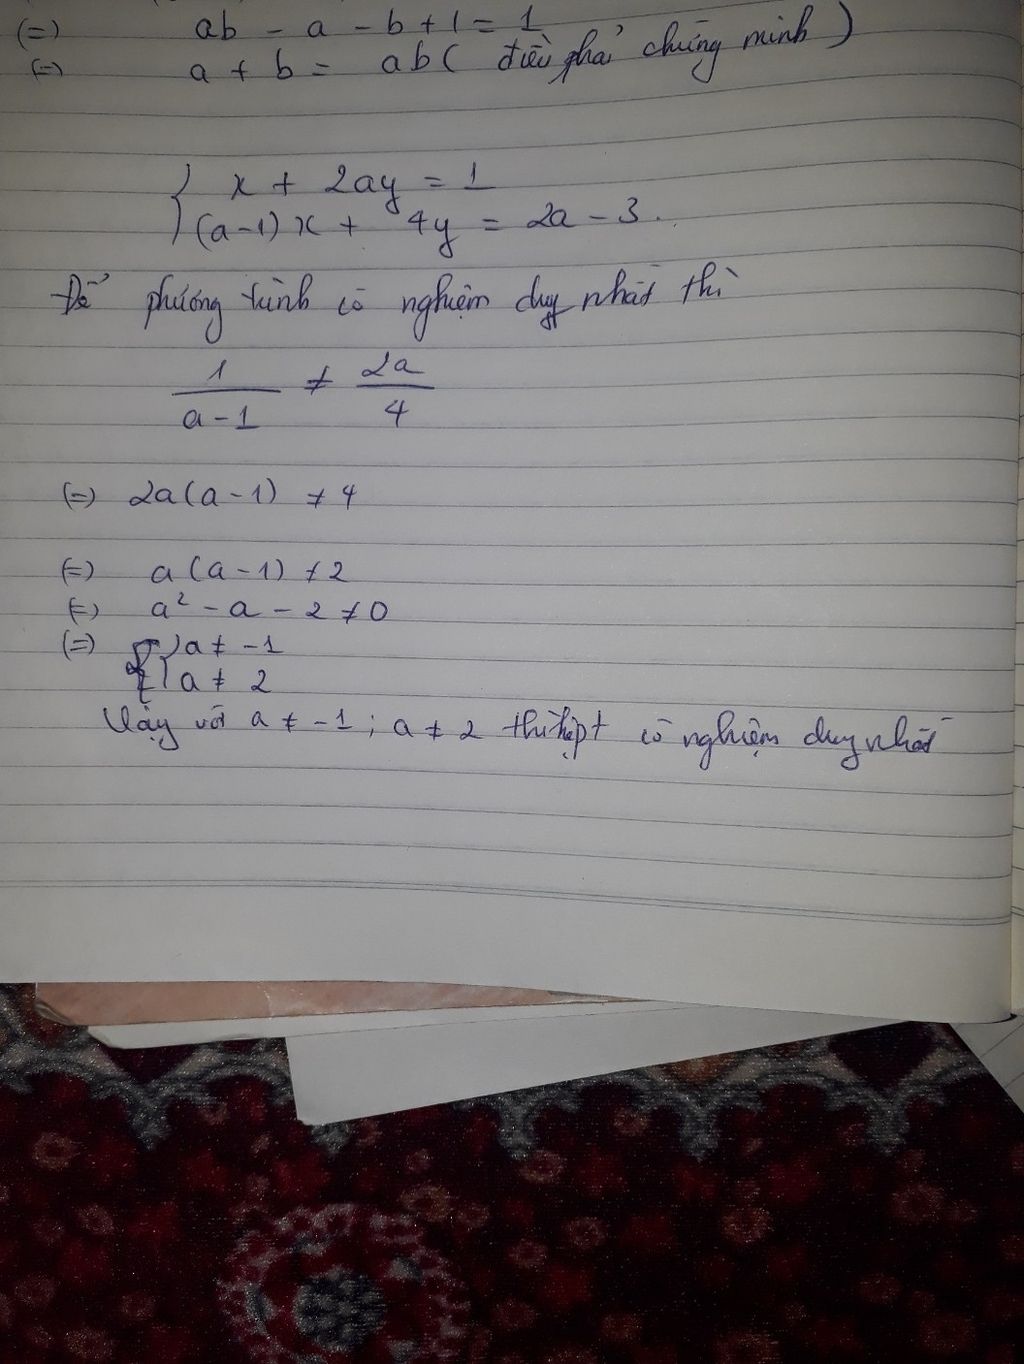 (=) ab - a - b + 1 = 1
(=) a + b = ab ( điều phải chứng minh )
{ x + 2ay = 1
(a-1) x + 4y = 2a - 3.
Để phương trình có nghiệm duy nhất thì
1/(a-1) ≠ 2a/4
(=) 2a(a-1) ≠ 4
(=) a(a-1) ≠ 2
(=) a² - a - 2 ≠ 0
(=) { a ≠ -1
a ≠ 2
Vậy với a ≠ -1 ; a ≠ 2 thì hệ pt có nghiệm duy nhất